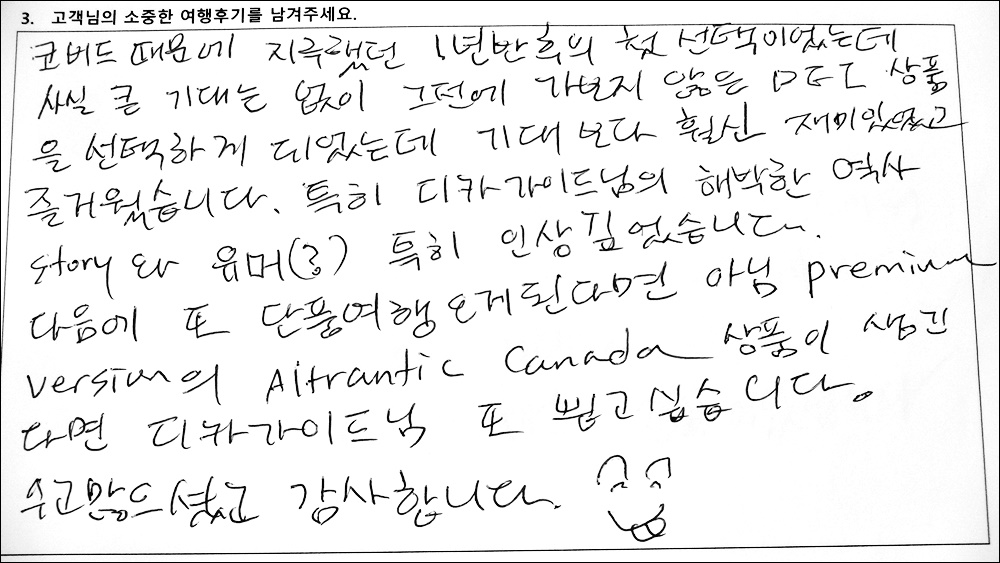 3. 고객님의 소중한 여행후기를 남겨주세요.
코비드 때문에 지루했던 1년반후의 첫 선택이었는데
사실 큰 기대는 없이 그전에 가보지 않은 PEI 상품
을 선택하게 되었는데 기대 보다 훨신 재미있었고
즐거웠습니다. 특히 디카가이드님의 해박한 역사
story 와 유머(?) 특히 인상깊었습니다.
다음에 또 단풍여행 오게된다면 아님 premium
version의 Altrantic Canada 상품이 생긴
다면 디카가이드님 또 뵙고싶습니다.
수고많으셨고 감사합니다.